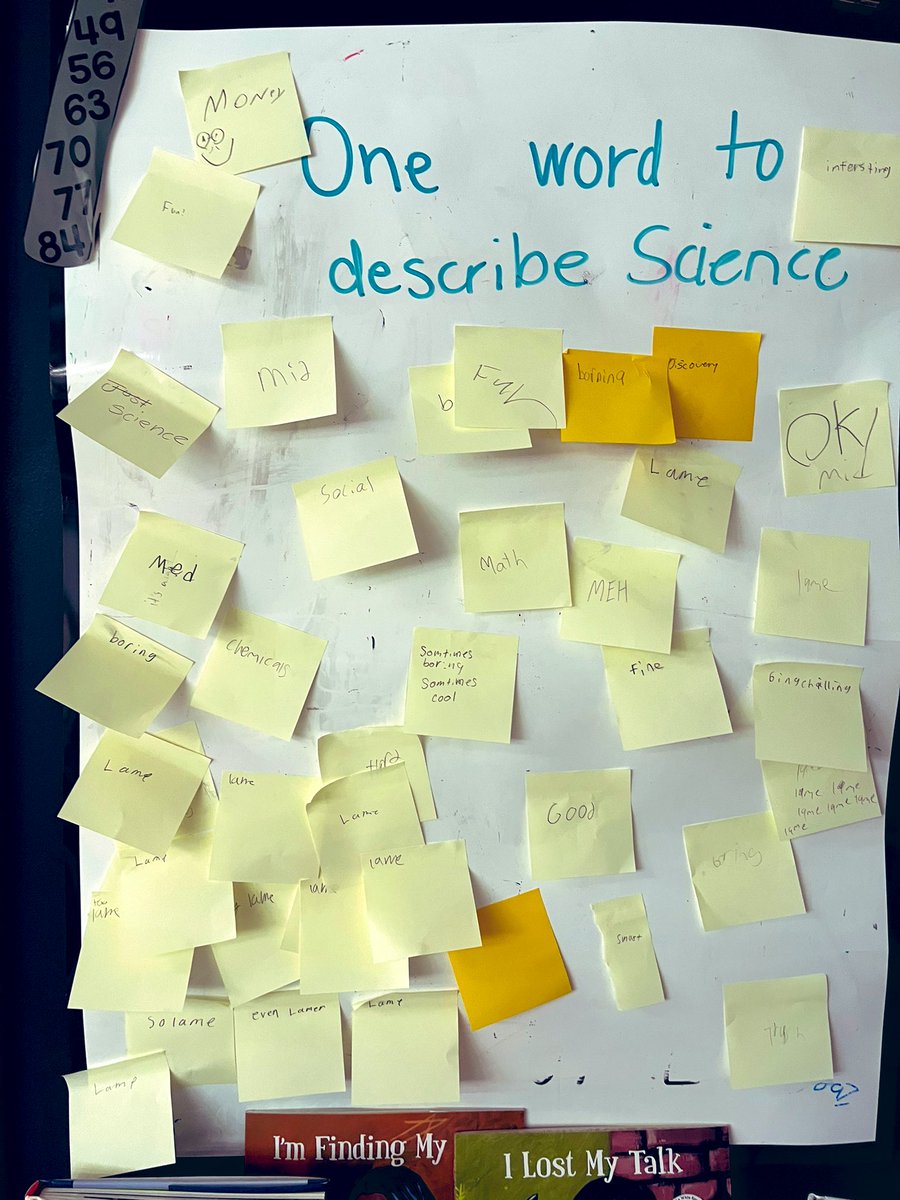 49
56
63
70
77
84
Money
Fun!
One word to
describe Science
intersting
Mid
Fun
boining
Discovery
science
OK
Mid
Lame
Social
Med
Math
MEH
lame
boring
chemicals
Somtimes
boring
Somtimes
cool
fine
bingchilling
Lame
lame
Hard
Lame
lame
lame lame
lame lame lame
lame
Good
boring
Lame
lame
lame
too
lame
lame
Smart
So lame
even Lamer
Lame
Lame
I'm Finding My
I Lost My Talk